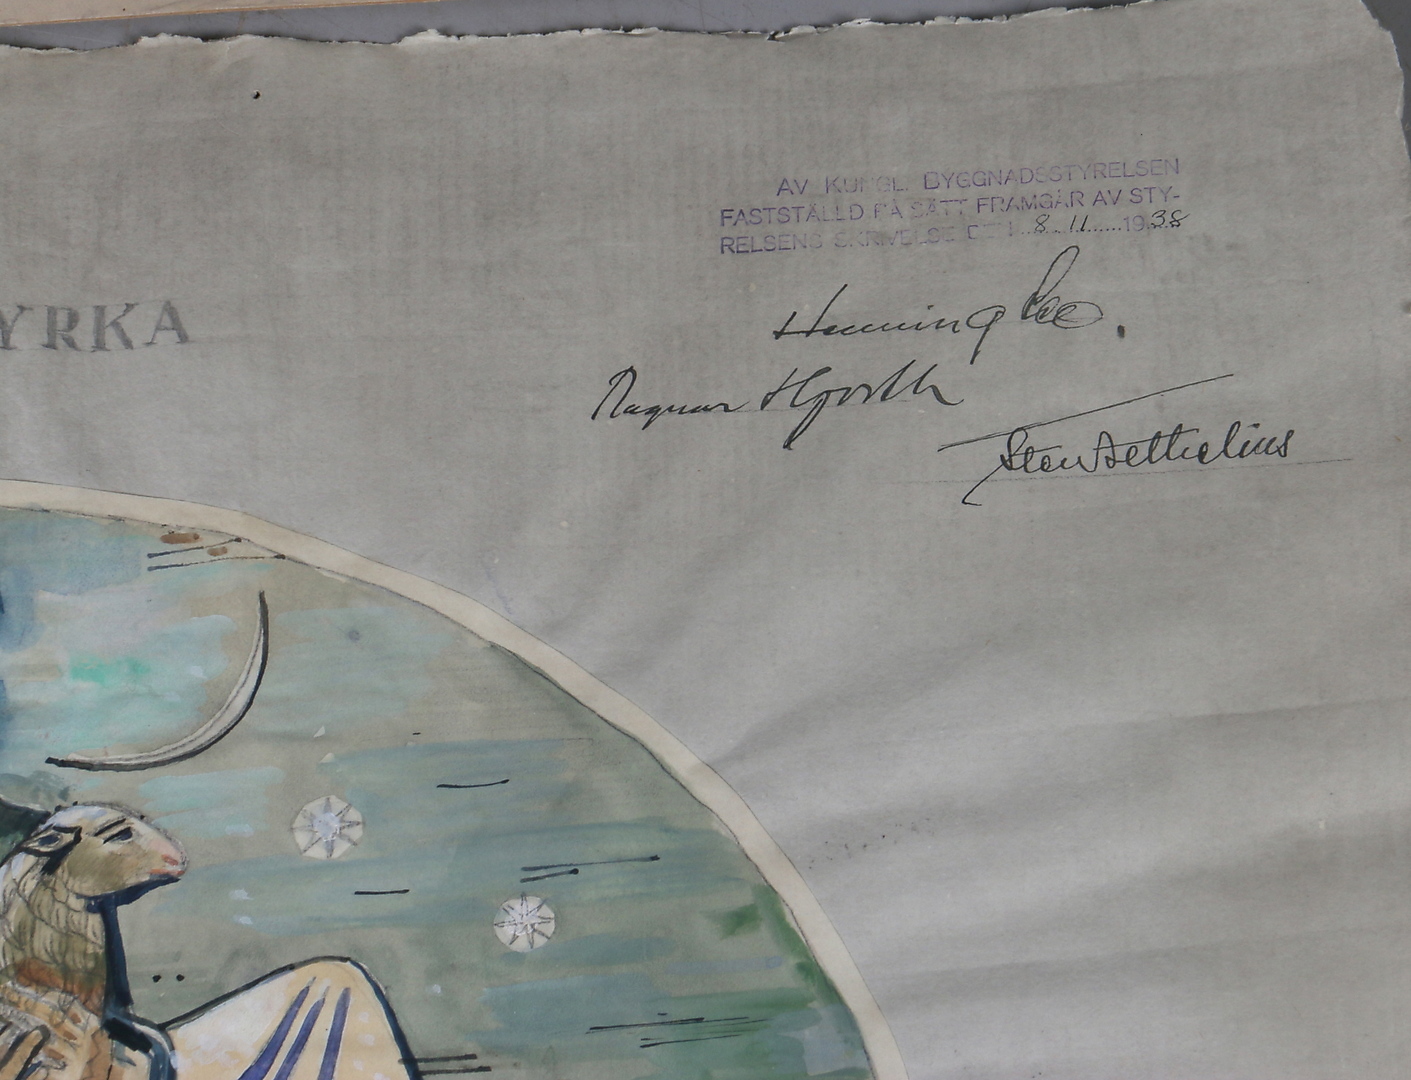 AV KUNGL. BYGGNADSSTYRELSEN
FASTSTÄLLD PÅ SÄTT FRAMGÅR AV STY-
RELSENS SKRIVELSE DEN 8.11.1938
YRKA
Henning
Ragnar Hjorth
Sten Westholius